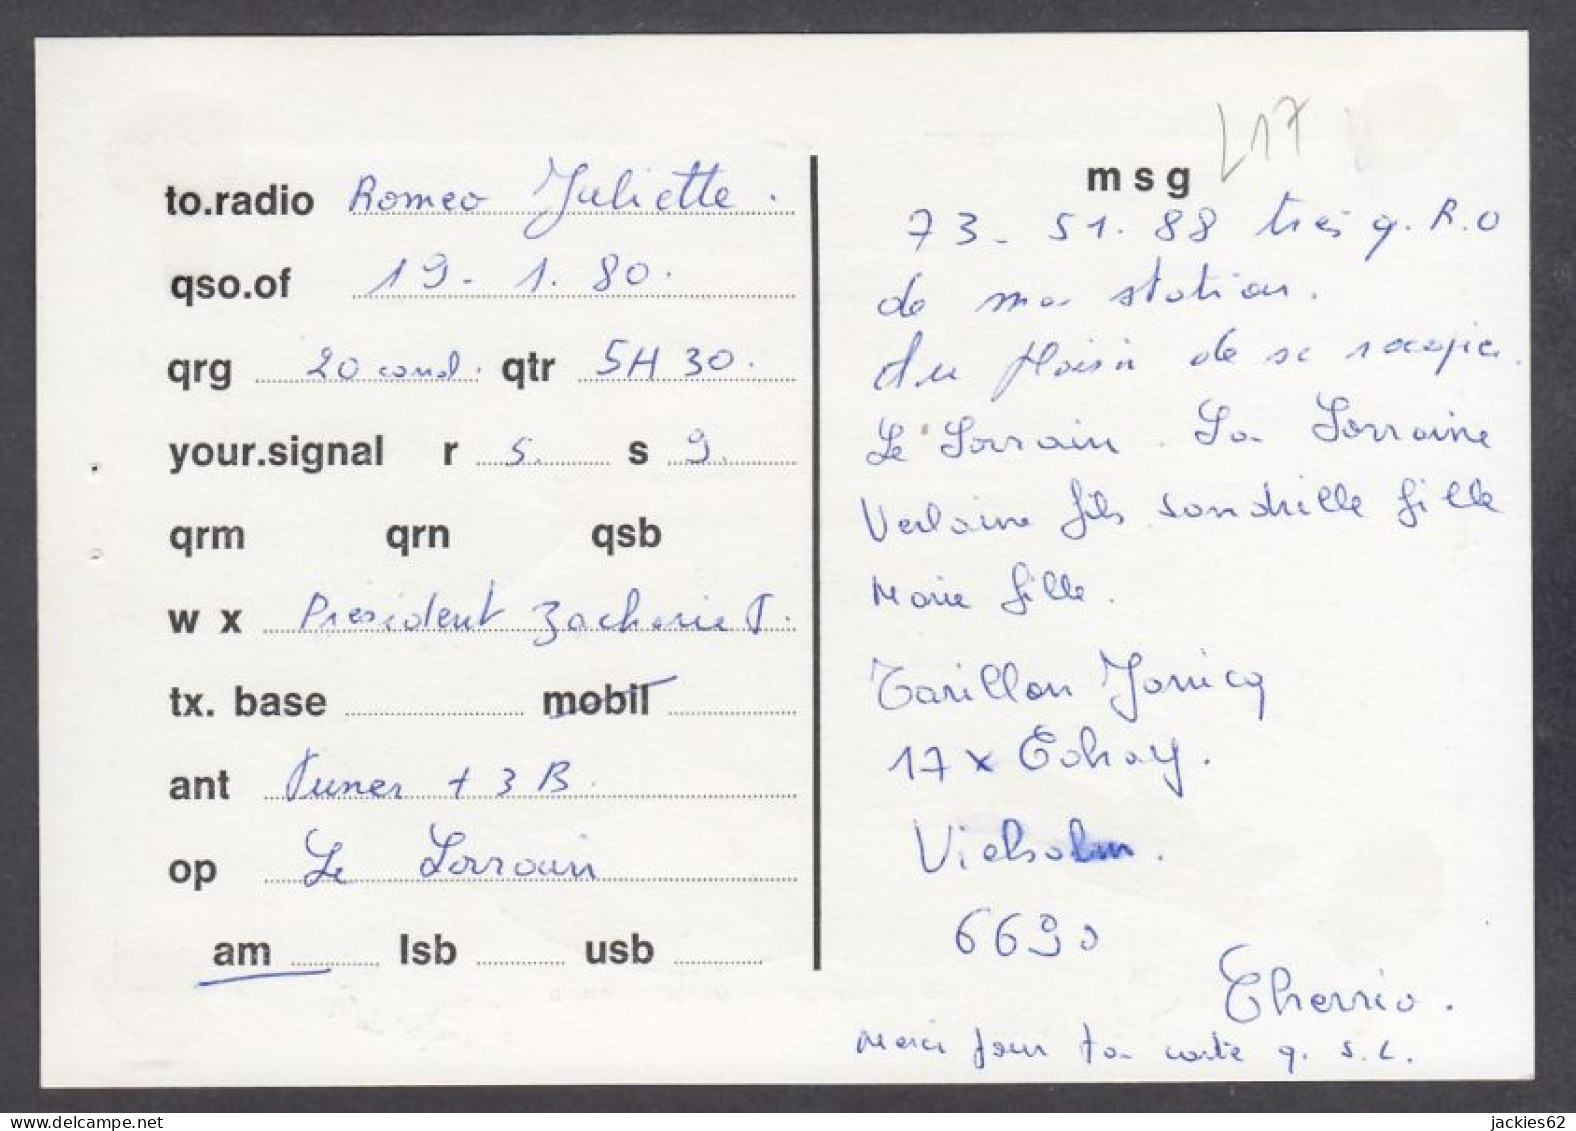 to.radio Romeo Juliette.
qso.of 19-1.80.
qrg 20 canal. qtr 5H30.
your.signal r 5. s 9.
qrm qrn qsb
w x President Zacharie T.
tx. base mobil
ant Tuner + 3 B.
op Le Lorrain
am lsb usb
L17
m s g
73-51.88 très q.R.O
de ma station.
du plaisir de se
Le Lorrain. La Lorraine
Verlaine fils Sandrille fille
Marie fille.
Tarillon Jonnicq
17x
Vielsalm.
6690
Cherrio.
Merci pour ta carte q.s.L.
jackies62